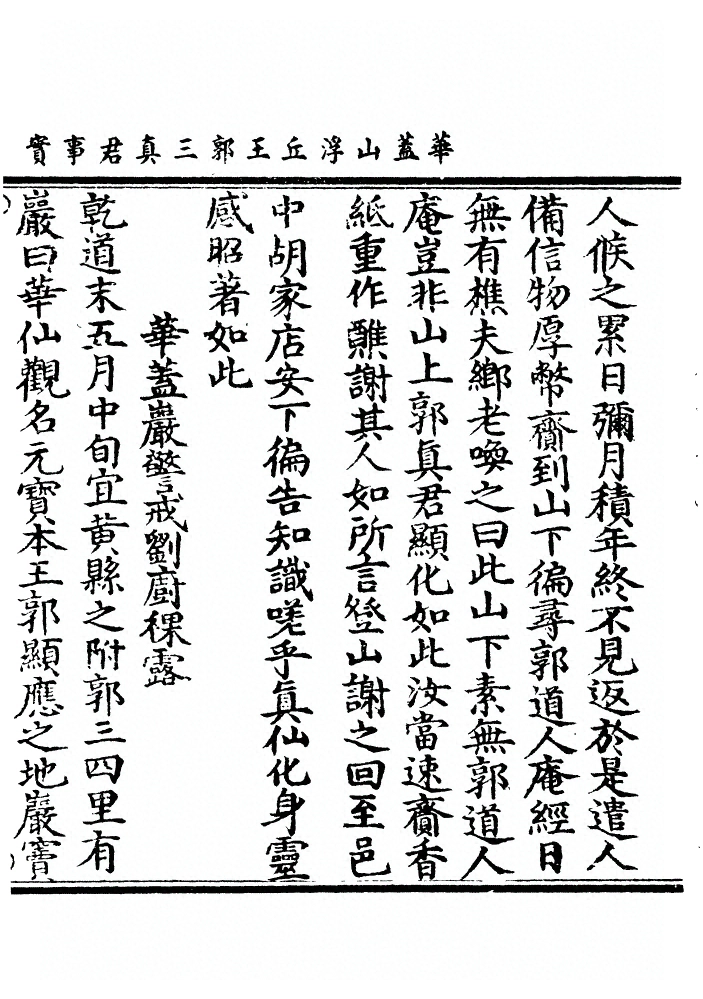 華蓋山浮丘王郭三真君事實
人候之累日彌月積年終不見返於是遣人
備信物厚幣齎到山下徧尋郭道人庵經日
無有樵夫鄉老喚之曰此山下素無郭道人
庵豈非山上郭真君顯化如此汝當速齎香
紙重作醮謝其人如所言登山謝之回至邑
中胡家店安下徧告知識嗟乎真仙化身靈
感昭著如此
華蓋巖警戒劉廚稞露
乾道末五月中旬宜黄縣之附郭三四里有
巖曰華仙觀名元寶本王郭顯應之地巖竇